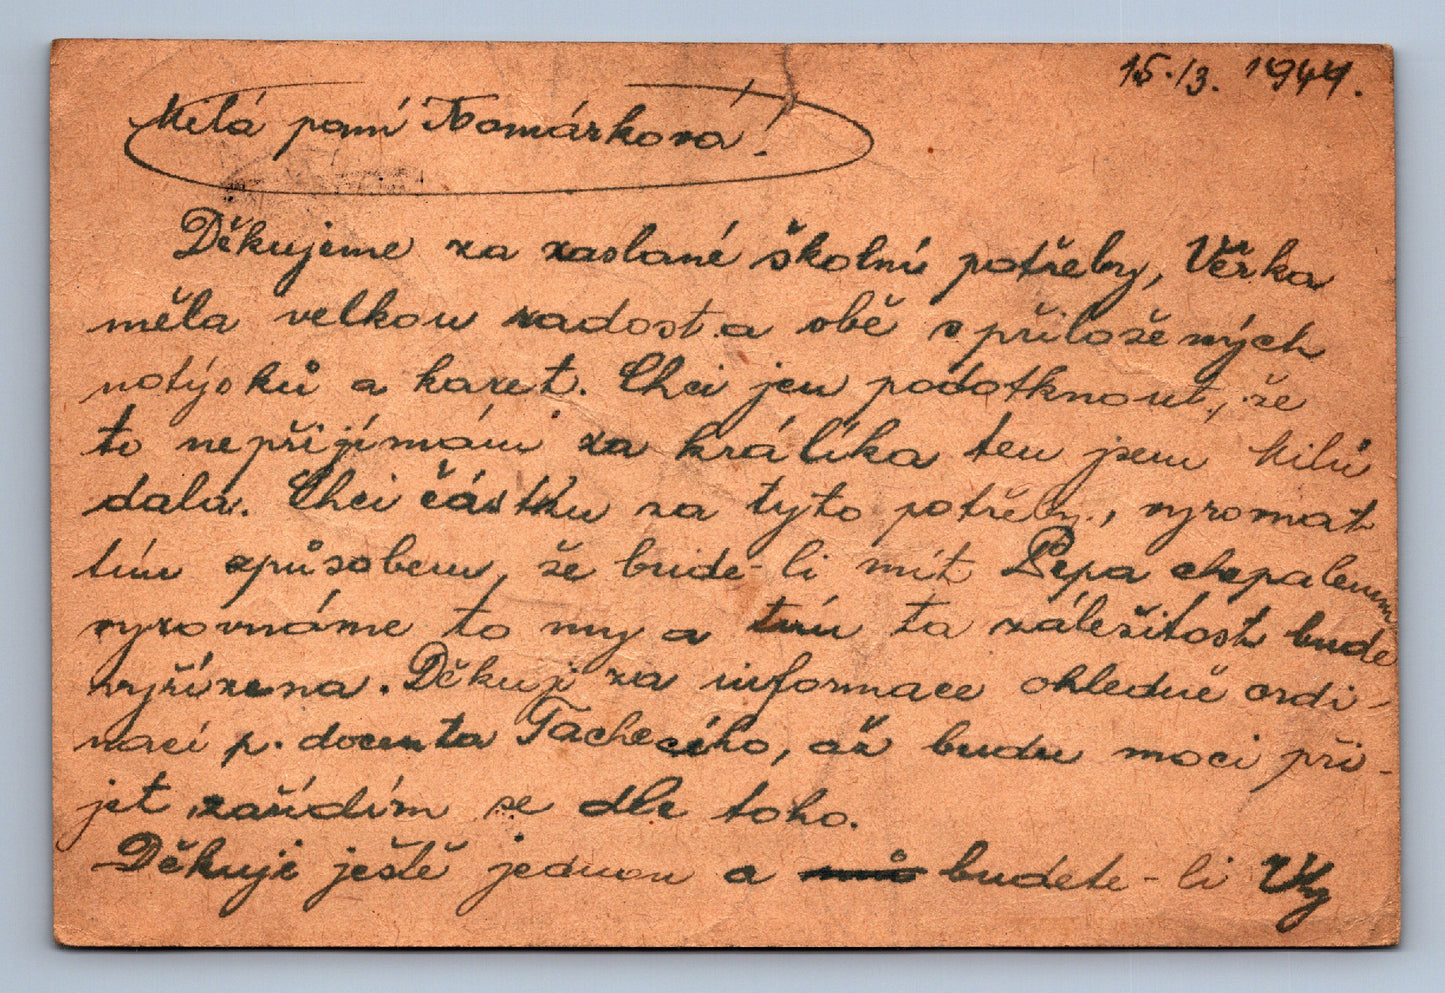 15./3. 1944.
Milá paní Tomárková!
Děkujeme za zaslané školní potřeby, Věrka
měla velkou radost a obě s přiložených
notýsků a karet. Chci jen podotknout, že
to nepřijímám za králíka ten jsem Milú
dala. Chci částku za tyto potřeby, vyrovnat
tím způsobem, že bude-li mít Pepa chepalenem
vyrovnáme to my a tím ta záležitost bude
vyřízena. Děkuji za informace ohledně ordi-
nací p. docenta Tachecího, až budu moci při-
jet zařídím se dle toho.
Děkuji ještě jednou a budete-li Vy